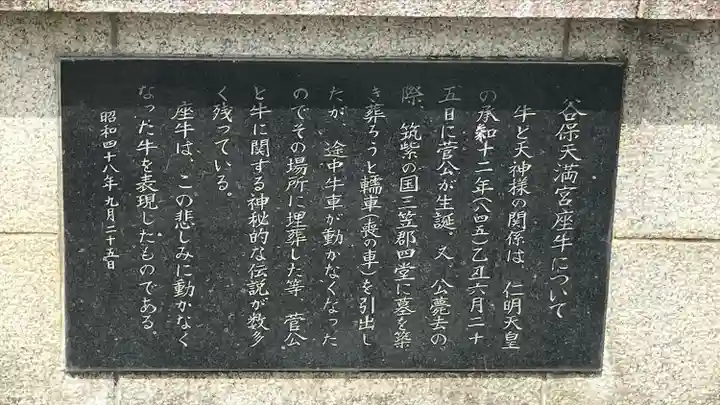 谷保天満宮座牛について
牛と天神様の関係は、仁明天皇
の承和十二年(八四五)乙丑六月二十
五日に菅公が生誕、又、公薨去の
際、筑紫の国三笠郡四堂に墓を築
き葬ろうと轜車(喪の車)を引出し
たが、途中牛車が動かなくなった
のでその場所に埋葬した等、菅公
と牛に関する神秘的な伝説が数多
く残っている。
座牛は、この悲しみに動かなく
なった牛を表現したものである。
昭和四十八年九月二十五日